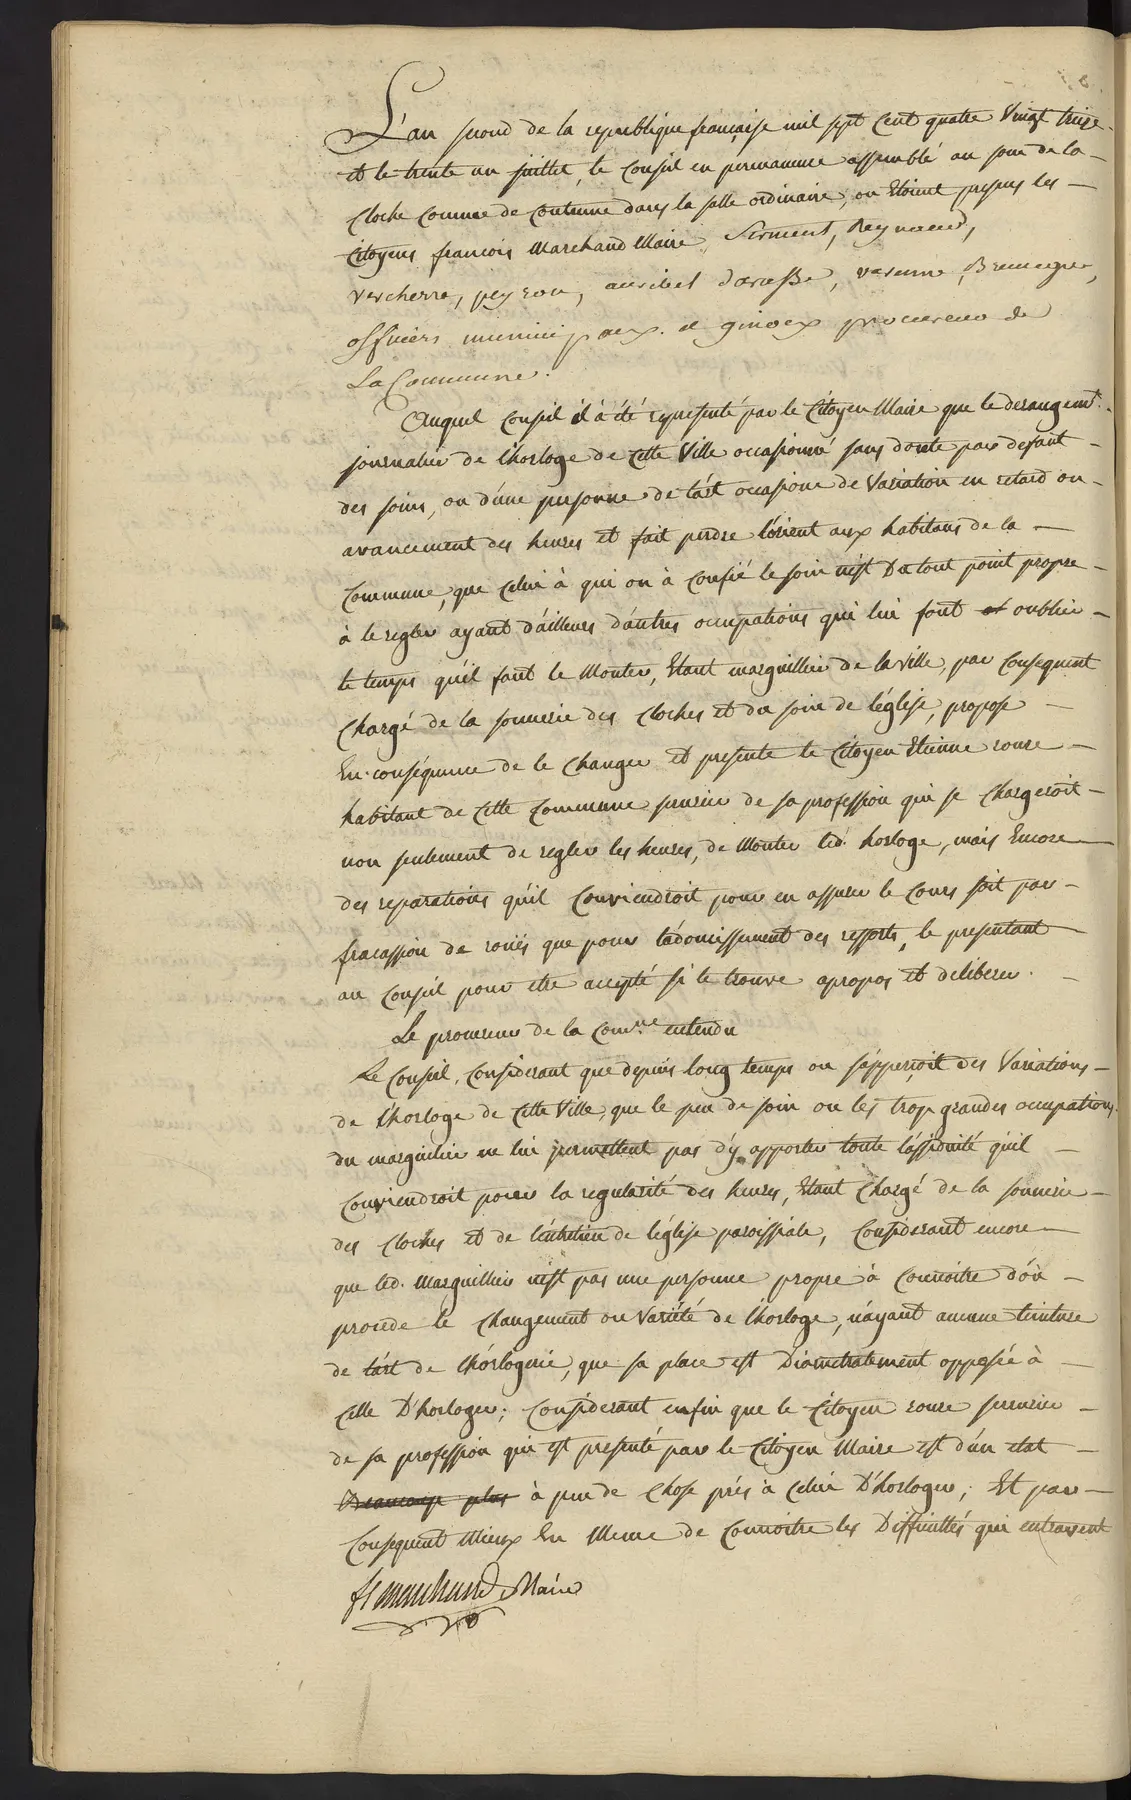 L'an second de la republique française mil sept Cent quatre Vingt treize
et le trente un juillet, le Conseil en permanence assemblé au son de la
Cloche Comme de Coutume dans la salle ordinaire, ou Etoient presens les
Citoyens francois Marchand Maire, Serment, Reynaud,
vercherre, peyron, auribel d'aresse, varenne,
officiers municipaux. et ginoux procureur de
La Commune.
Auquel Conseil il à été representé par le Citoyen Maire que le derangemt.
journalier de l'horloge de Cette Ville occasionné sans doute par defaut
des soins, ou d'une personne de l'art occasione de Variation en retard ou
avancement des heures et fait perdre l'orient aux habitans de la
Commune, que Celui à qui on à Confié le soin n'est Du tout point propre
à le regler ayant d'ailleurs d'autres occupations qui lui font et oublier
le temps qu'il faut le Monter, Etant marguillier de la ville, par Consequent
Chargé de la sonnerie des Cloches et du soin de l'église, propose
En conséquence de le Changer et presente le Citoyen Etienne roure
habitant de Cette Commune serrurier de sa profession qui se Chargeroit
non seulement de regler les heures, de Monter led. horloge, mais Encore
des reparations qu'il Conviendroit pour en assurer le Cours soit par
fracassion de roües que pour l'adoucissement des ressorts, le presentant
au Conseil pour etre accepté si le trouve apropos et deliberer.
Le procureur de la Comune. entendu
Le Conseil, Considerant que depuis long temps on s'apperçoit des Variations
de l'horloge de Cette Ville, que le peu de soin ou les trop grandes occupations
du marguilier ne lui permettent pas d'y apporter toute l'assiduité qu'il
Conviendroit pour la regularité des heures, Etant Chargé de la sonnerie
des Cloches et de l'entretien de l'église paroissiale, Considerant encore
que led. Marguillier n'est pas une personne propre à Connoitre d'où
procede le Changement ou Variété de l'horloge, n'ayant aucune teinture
de l'art de l'horlogerie, que sa place est Diametralement opposée à
Celle D'horloger; Considerant enfin que le Citoyen roure serrurier
de sa profession qui est presenté par le Citoyen Maire est d'un etat
Beaucoup plus à peu de Chose prés à Celui D'horloger; Et par
Consequent Mieux En Meme de Connoitre les Difficultés qui entravent
fs marchand Maire